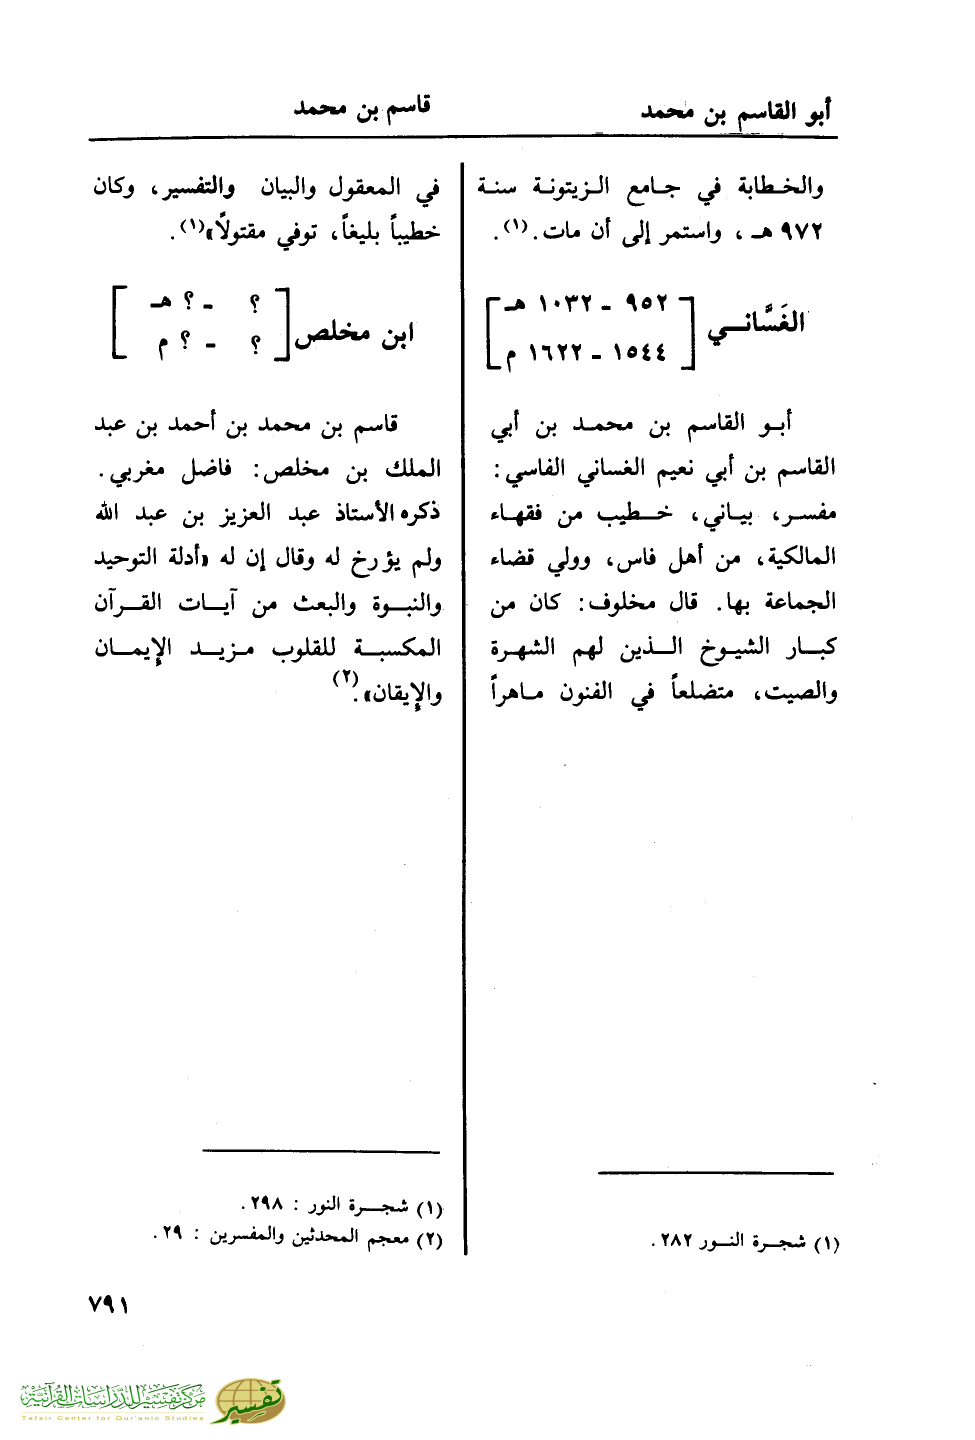 أبو القاسم بن محمد
قاسم بن محمد
والخطابة في جامع الزيتونة سنة
٩٧٢ هـ ، واستمر إلى أن مات .(١).
الغَسَّاني
[٩٥٢ - ١٠٣٢ هـ
١٥٤٤ - ١٦٢٢ م]
أبو القاسم بن محمد بن أبي
القاسم بن أبي نعيم الغساني الفاسي :
مفسر، بياني، خطيب من فقهاء
المالكية، من أهل فاس، وولي قضاء
الجماعة بها. قال مخلوف: كان من
كبار الشيوخ الذين لهم الشهرة
والصيت، متضلعاً في الفنون ماهراً
(١) شجرة النور ٢٨٢ .
في المعقول والبيان والتفسير، وكان
خطيباً بليغاً، توفي مقتولاً»(١).
ابن مخلص
[؟ - ؟ هـ
؟ - ؟ م]
قاسم بن محمد بن أحمد بن عبد
الملك بن مخلص: فاضل مغربي.
ذكره الأستاذ عبد العزيز بن عبد الله
ولم يؤرخ له وقال إن له «أدلة التوحيد
والنبوة والبعث من آيات القرآن
المكسبة للقلوب مزيد الإيمان
والإيقان».(٢)
(١) شجرة النور : ٢٩٨ .
(٢) معجم المحدثين والمفسرين : ٢٩ .
٧٩١
مركز تفسير للدراسات القرآنية
Tafsir Center for Qur'anic Studies
تفسير